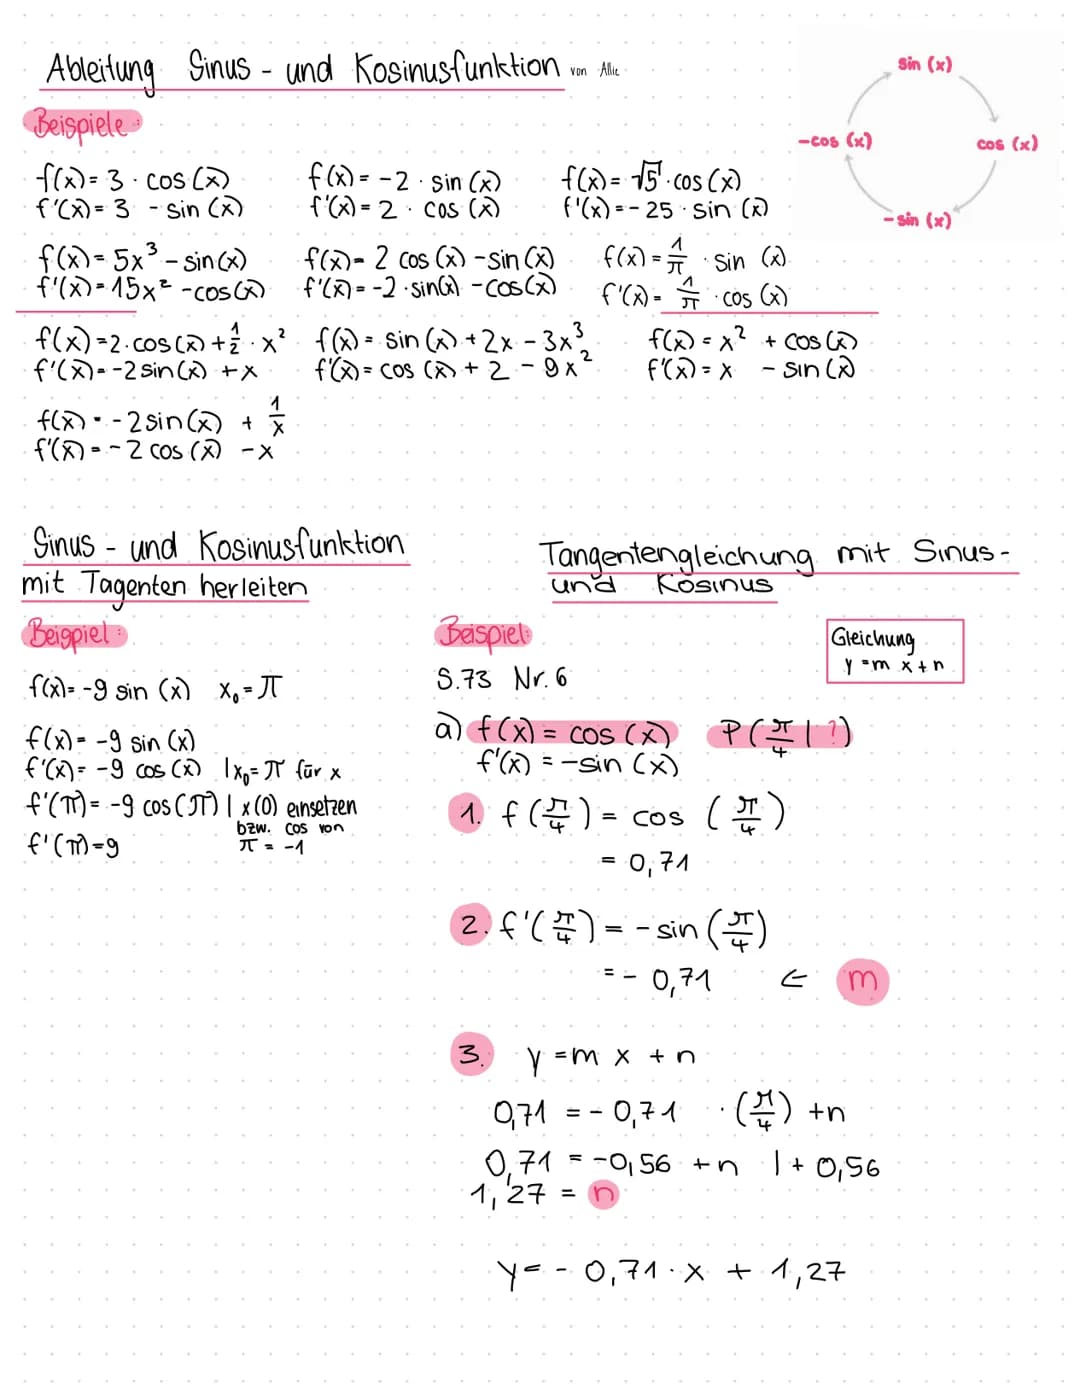 Ableitung Sinus - und Kosinusfunktion von Allie
sin (x)
cos (x)
- sin (x)
-cos (x)
Beispiele:
f(x) = 3 · cos (x)
f'(x) = 3 - sin (x)
f(x) = -2 · sin (x)
f'(x) = 2 · cos (x)
f(x) = √5 · cos (x)
f'(x) = - 25 · sin (x)
f(x) = 5x³ - sin(x)
f'(x) = 15x² - cos(x)
f(x) = 2 cos (x) - sin (x)
f'(x) = -2 · sin(x) - cos(x)
f(x) = 1/π · sin (x)
f'(x) = 1/π · cos (x)
f(x) = 2 · cos (x) + 1/2 · x²
f'(x) = -2 sin (x) + x
f(x) = sin (x) + 2x - 3x³
f'(x) = cos (x) + 2 - 9x²
f(x) = x² + cos (x)
f'(x) = x - sin (x)
f(x) = -2 sin (x) + 1/x
f'(x) = -2 cos (x) - x
Sinus - und Kosinusfunktion
mit Tagenten herleiten
Beispiel:
f(x) = -9 sin (x) x₀ = π
f(x) = -9 sin (x)
f'(x) = -9 cos (x) | x₀ = π für x
f'(π) = -9 cos (π) | x(0) einsetzen
bzw. cos von
f'(π) = 9 π = -1
Tangentengleichung mit Sinus -
und Kosinus
Beispiel:
Gleichung
y = m x + n
S. 73 Nr. 6
a) f(x) = cos (x) P(π/4 | ?)
f'(x) = -sin (x)
1. f (π/4) = cos (π/4)
= 0,71
2. f'(π/4) = - sin (π/4)
= - 0,71 ⇐ m
3. y = m x + n
0,71 = - 0,71 · (π/4) + n
0,71 = -0,56 + n | + 0,56
1,27 = n
y = - 0,71 · x + 1,27